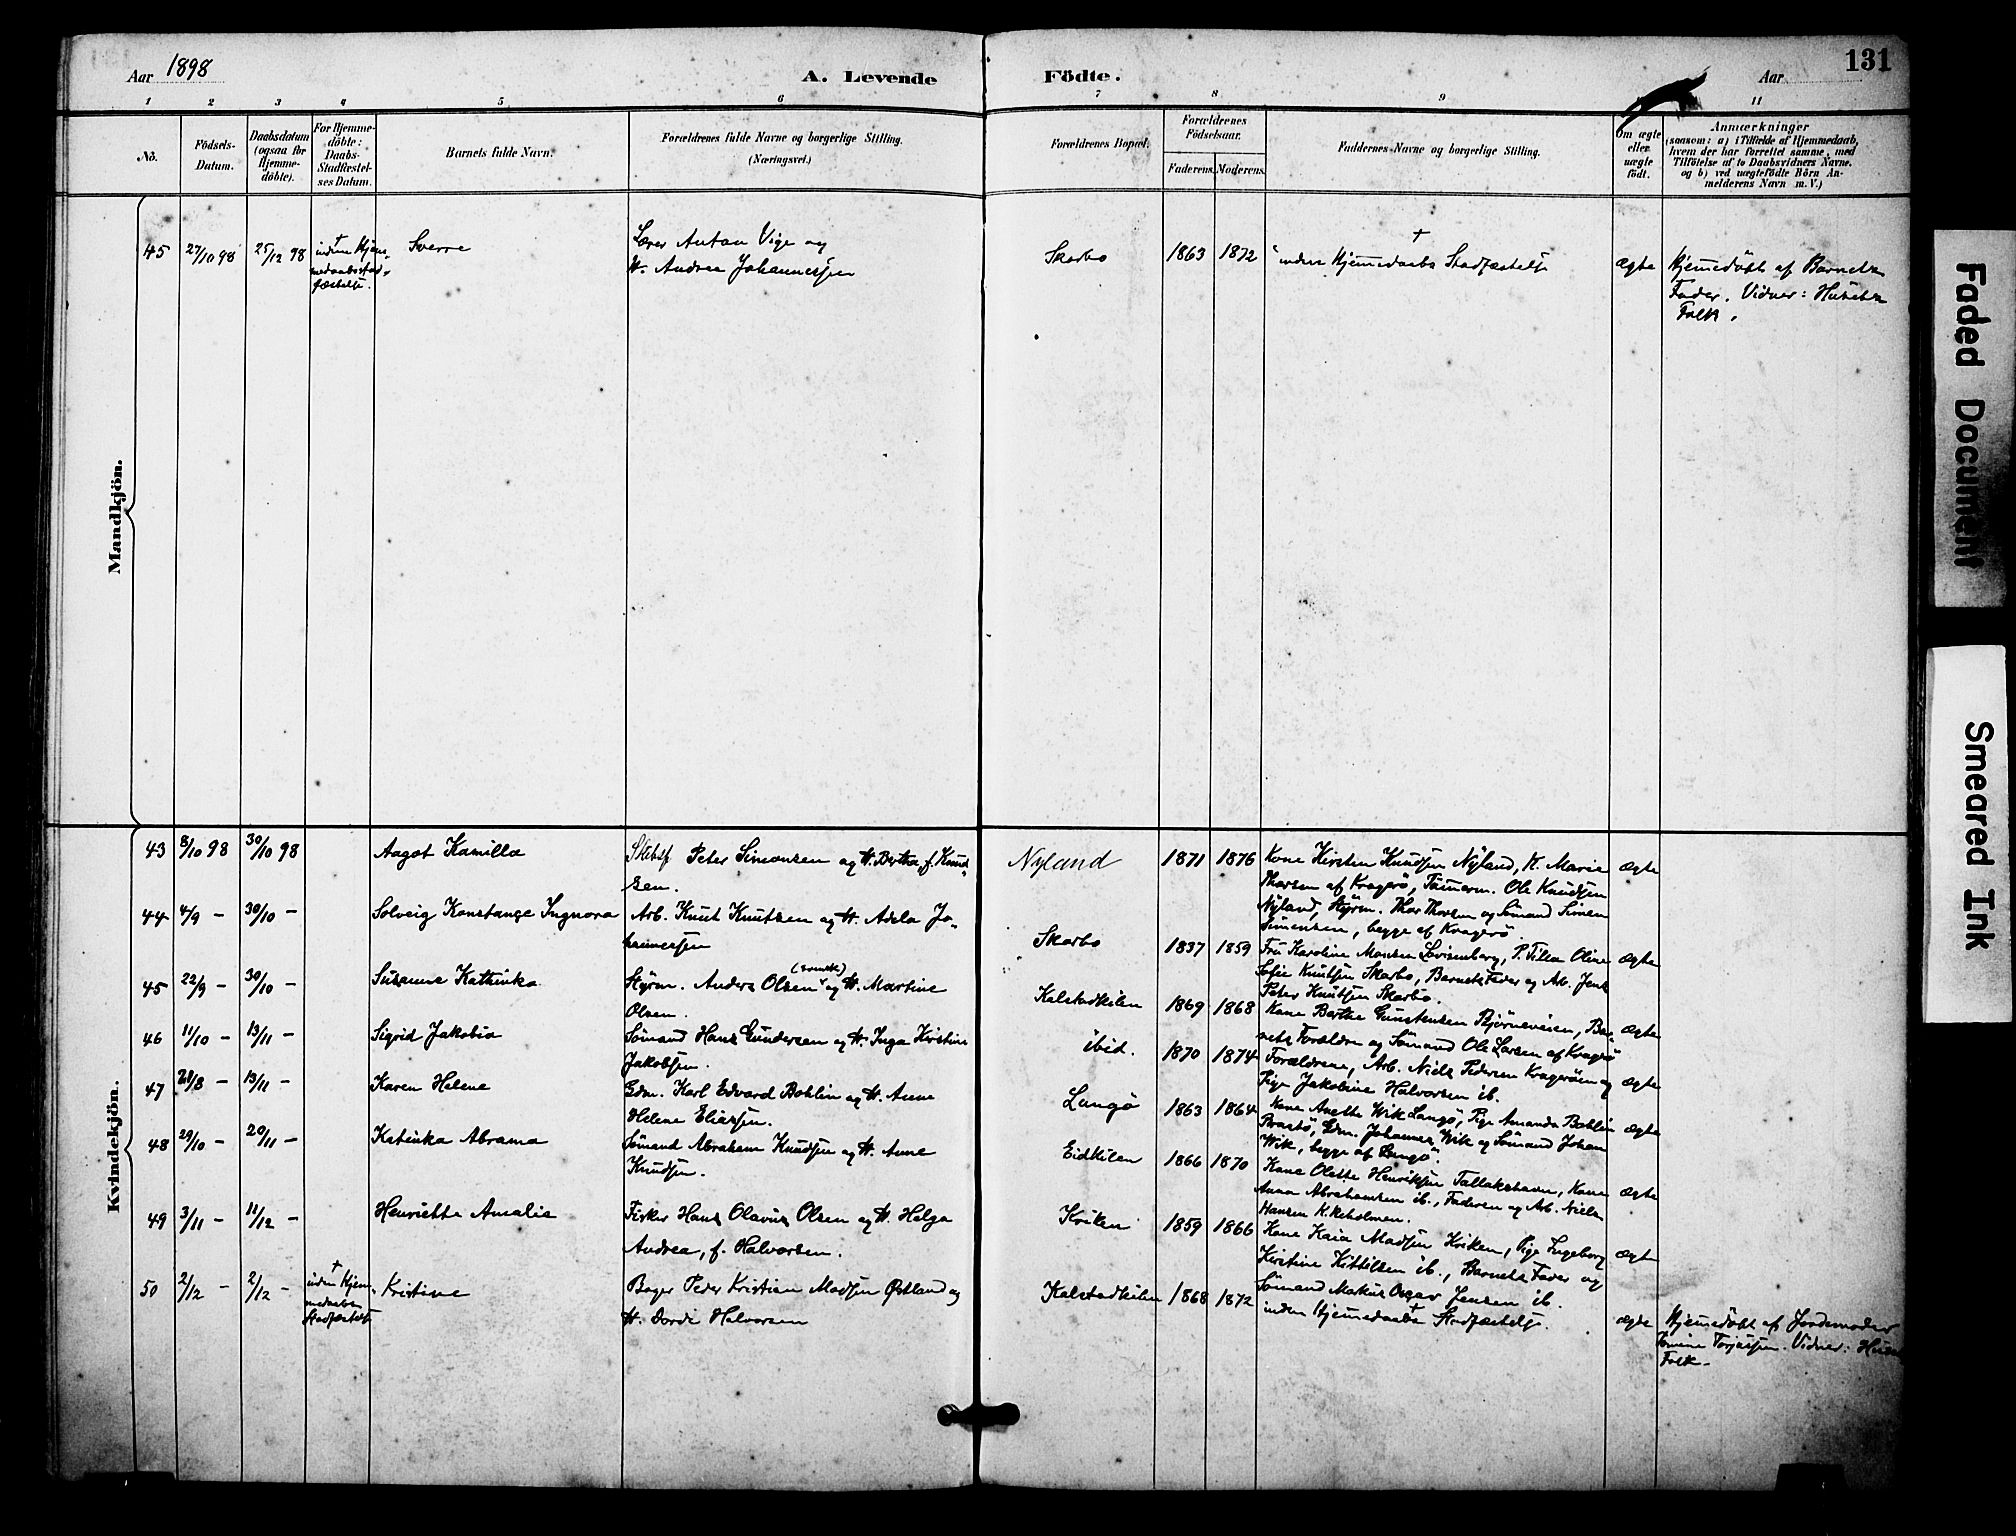 Aar 1898
A. Levende
Födte.
Aar
131
1 2 3 4 5 6 7 8 9 11
No.
Födsels-
Datum.
Daabsdatum
(ogsaa for
Hjemme-
döbte).
For Hjemme-
döbte:
Daabs-
Stadfæstel-
ses Datum.
Barnets fulde Navn.
Forældrenes fulde Navne og borgerlige Stilling.
(Næringsvei.)
Forældrenes Bopæl.
Forældrenes
Födselsaar.
Faderens. Moderens.
Faddernes Navne og borgerlige Stilling.
Om ægte
eller
uægte
födt.
Anmærkninger
(saasom: a) i Tilfælde af Hjemmedaab,
hvem der har forrettet samme, med
Tilföielse af to Daabsvidners Navne,
og b) ved uægtefödte Börn An-
melderens Navn m. V.)
Mandkjön.
45 27/10 98 25/12 98
† inden Hjem-
medaabsstad-
fæstelse.
Sverre
Lærer Anton Vige og
H. Andrea Johannessen
Skarbo 1863 1872
† inden Hjemmedaabs Stadfæstelse
ægte
Hjemmedöbt af Barnets
Fader. Vidner: Husets
Folk.
Kvindekjön.
43 8/10 98 30/10 98 Aagot Kamilla
Skibsf. Peter Simonsen og H. Bertha, f. Knud-
sen.
Nyland 1871 1876
Kone Kirsten Knudsen Nyland, K. Marie
Thorsen af Kragerö, Tömmerm. Ole Knudsen
Nyland, Styrm. Thor Thorsen og Sömand Simon
Simonsen, begge af Kragerö.
ægte
44 4/9 – 30/10 – Solveig Konstanse Ingnora
Arb. Knut Knutsen og H. Adela Jo-
hannessen
Skarbo 1837 1859
Fru Karoline Monsen Lovisenberg, P. Tilla Oline
Sofie Knutsen Skarbo, Barnets Fader og Arb. Jens
Peter Knutsen Skarbo.
ægte
45 22/9 – 30/10 – Susanne Kathinka
Styrm. Anders Olsen (svensk) og H. Martine
Olsen.
Kalstadkilen 1869 1868
Kone Berthe Gunstensen Bjørneveien, Bar-
nets Forældre og Sömand Ole Larsen af Kragerö
ægte
46 11/10 – 13/11 – Sigrid Jakobia
Sömand Hans Gundersen og H. Inga Kirstine
Jakobsen.
ibid. 1870 1874
Forældrene, Arb. Niels Pedersen Kragerøen og
Pige Jakobine Halvorsen ib.
ægte
47 21/8 – 13/11 – Karen Helene
Gdm. Karl Edvard Bohlin og H. Anne
Helene Eliassen.
Langö 1863 1864
Kone Anette Wik Langö, Pige Amanda Bohlin
Gdm. Johannes Wik og Sömand Johan
Wik, begge af Langö.
ægte
48 29/10 – 20/11 – Katinka Abrama
Sömand Abraham Knudsen og H. Anne
Knudsen.
Eidkilen 1866 1870
Kone Olette Henriksen Tallakshavn, Kone
Anna Abrahamsen ib., Faderen og Arb. Niels
Hansen
ægte
49 3/11 – 11/12 – Henriette Amalie
Fisker Hans Olavus Olsen og H. Helga
Andrea, f. Halvorsen.
Kviken 1859 1866
Kone Kaia Madsen Kviken, Pige Ingeborg
Kirstine Kittilsen ib., Barnets Fader og
Sömand Makus Oscar Jensen ib.
ægte
50 2/12 – 2/12 –
† inden Hjem-
medaabs
Stadfæstelse
Kristine
Bager Peder Kristian Madsen Østland og
H. Dorde Halvorsen
Kalstadkilen 1868 1872
inden Hjemmedaabs † Stadfæstelse.
ægte
Hjemmedöbt af Jordemoder
Torjussen. Vidner: Husets
Folk.
Faded Document
Smeared Ink